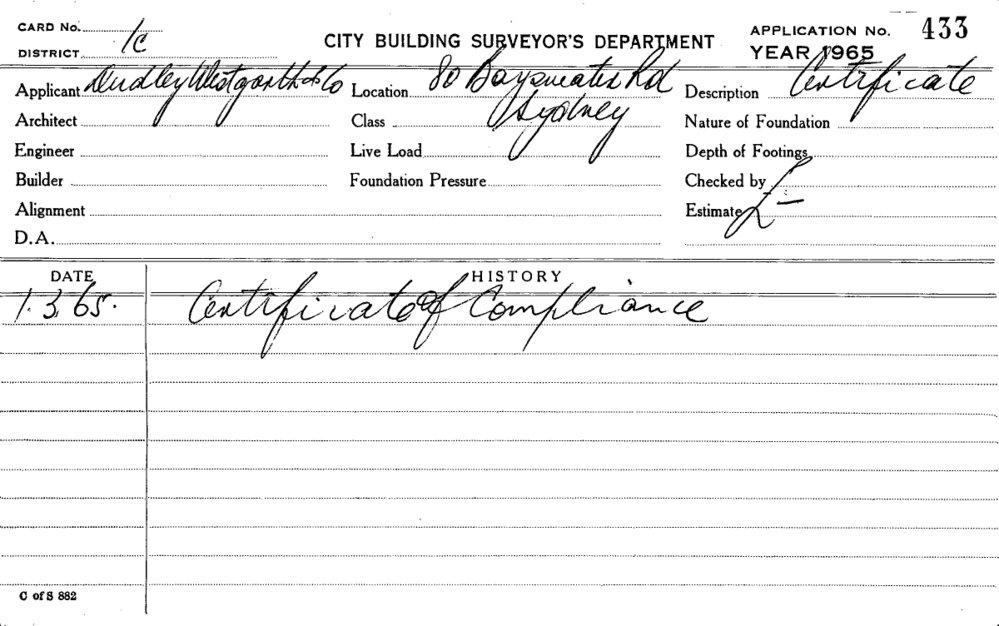 CARD No.
CITY BUILDING SURVEYOR'S DEPARTMENT
APPLICATION No. 433
DISTRICT 1c
YEAR 1965
Applicant Dudley Westgarth & Co Location 80 Bayswater Rd Description Certificate
Architect Class Sydney Nature of Foundation
Engineer Live Load Depth of Footings
Builder Foundation Pressure Checked by
Alignment Estimate £ —
D.A.
DATE HISTORY
1.3.65. Certificate of Compliance
C of S 882